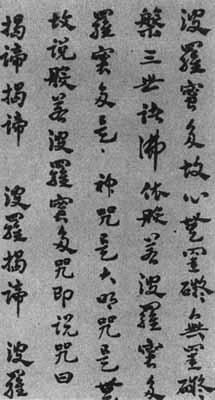 波羅蜜多故心無罣礙無罣礙
槃三世諸佛依般若波羅蜜多
羅蜜多是神咒是大明咒是無
故說般若波羅蜜多咒即說咒曰
揭諦揭諦 波羅揭諦 波羅